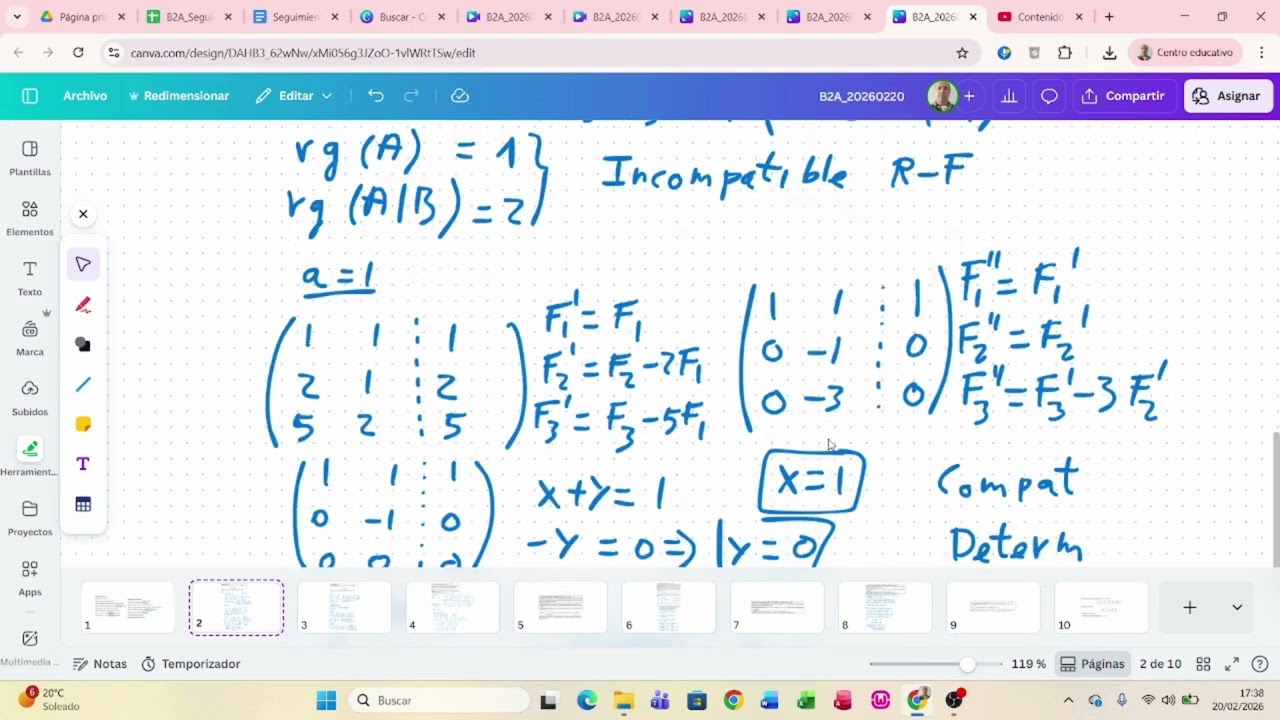 Página prin
B2A_Segui
Seguimien
Buscar - C
B2A_2026
B2A_20260
B2A_2026
B2A_2026
B2A_2026
Contenido
canva.com/design/DAHB3_62wNw/xMi056g3JZoO-1vlWRtTSw/edit
Centro educativo
Archivo
Redimensionar
Editar
B2A_20260220
Compartir
Asignar
Plantillas
Elementos
Texto
Marca
Subidos
Herramient...
Proyectos
Apps
Multimedia ...
rg (A) = 1
rg (A|B) = 2
Incompatible R-F
a = 1
1 1 ⋮ 1
2 1 ⋮ 2
5 2 ⋮ 5
F₁' = F₁
F₂' = F₂ - 2F₁
F₃' = F₃ - 5F₁
1 1 ⋮ 1
0 -1 ⋮ 0
0 -3 ⋮ 0
F₁'' = F₁'
F₂'' = F₂'
F₃'' = F₃' - 3 F₂'
1 1 ⋮ 1
0 -1 ⋮ 0
0 0 ⋮ 0
x + y = 1
-y = 0 => y = 0
x = 1
Compat
Determ
1
2
3
4
5
6
7
8
9
10
Notas
Temporizador
119 %
Páginas
2 de 10
6
20°C
Soleado
Buscar
17:38
20/02/2026